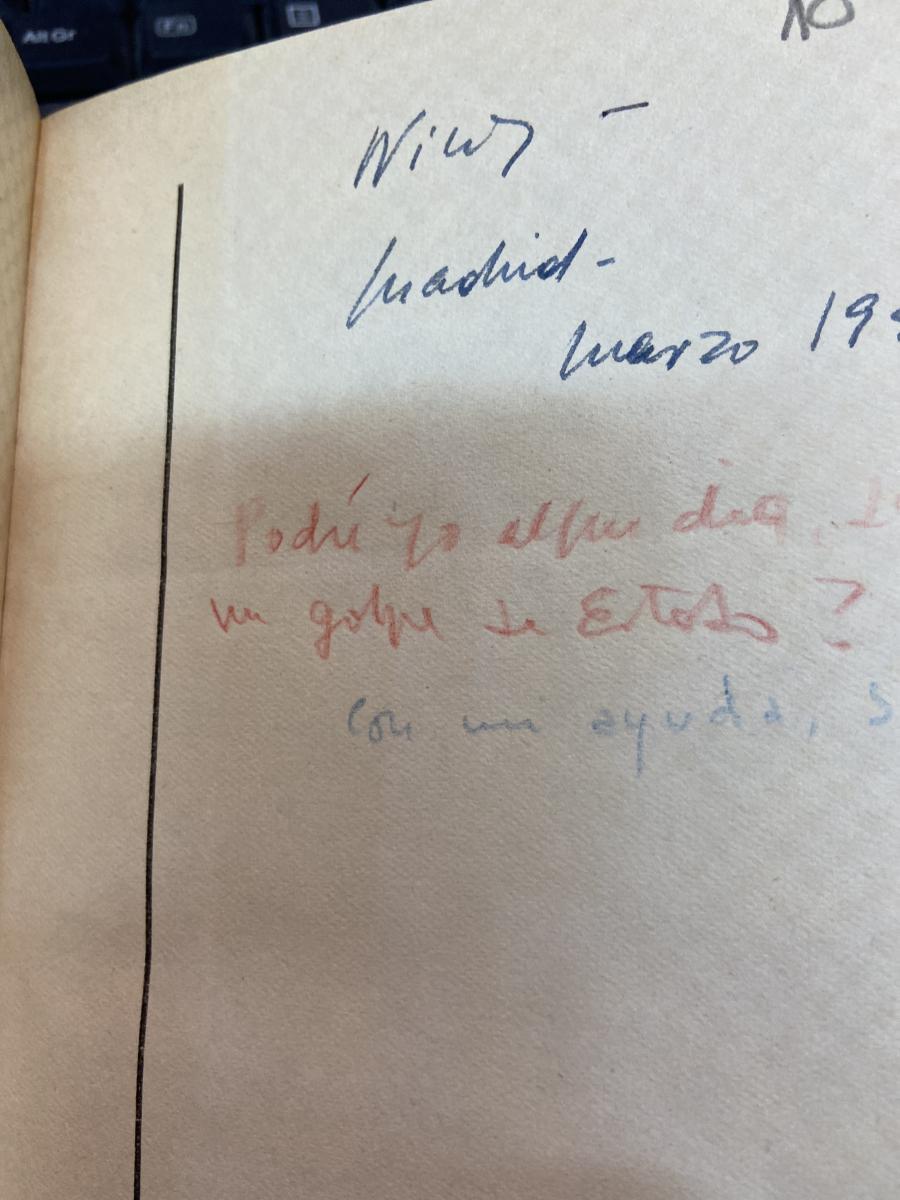 Alt Gr
Fn
10
madrid -
marzo 19
Podré yo algun dia,
un golpe de Estado ?
con mi ayuda, s